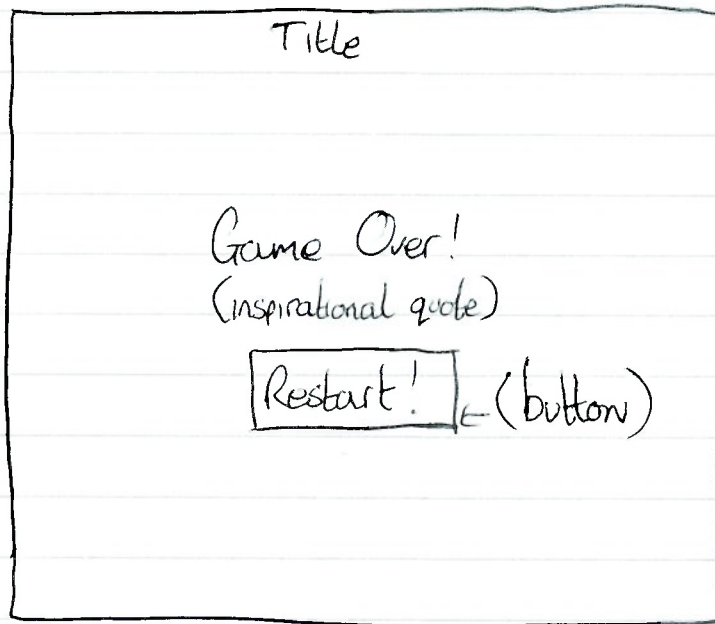 Title
Game Over!
(inspirational quote)
Restart! ← (button)